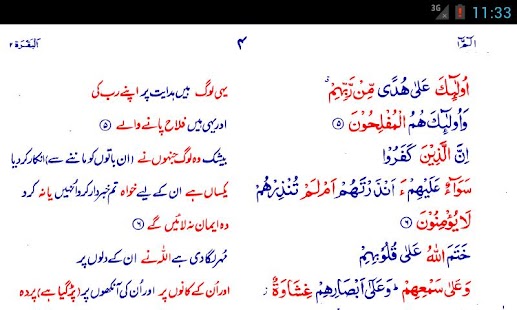 3G 11:33
الٓمّٓ ١ ۴ اَلبَقَرَة ٢
اُولٰٓئِكَ عَلٰى هُدًى مِّنْ رَّبِّهِمْ ۗ
یہی لوگ ہیں ہدایت پر اپنے رب کی
وَاُولٰٓئِكَ هُمُ الْمُفْلِحُوْنَ ⑤
اور یہی ہیں فلاح پانے والے ⑤
اِنَّ الَّذِيْنَ كَفَرُوْا
بیشک وہ لوگ جنہوں نے (ان باتوں کو ماننے سے) انکار کردیا
سَوَآءٌ عَلَيْهِمْ ءَاَنْذَرْتَهُمْ اَمْ لَمْ تُنْذِرْهُمْ
یکساں ہے ان کے لیے خواہ تم خبردار کرو انہیں یا نہ کرو
لَا يُؤْمِنُوْنَ ⑥
وہ ایمان نہ لائیں گے ⑥
خَتَمَ اللّٰهُ عَلٰى قُلُوْبِهِمْ
مُہر لگا دی ہے اللہ نے ان کے دلوں پر
وَعَلٰى سَمْعِهِمْ ؕ وَعَلٰٓى اَبْصَارِهِمْ غِشَاوَةٌ
اور اُن کے کانوں پر اور اُن کی آنکھوں پر (پڑ گیا ہے) پردہ